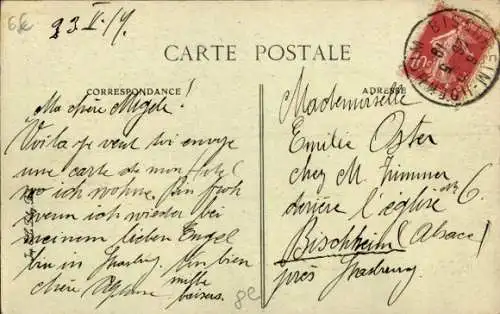 23 V. 19.
CARTE POSTALE
CORRESPONDANCE
ADRESSE
Ma chère
Voilà je veut toi envoye
une carte de mon
wo ich wohne. Bin froh
wenn ich wieder bei
meinem lieben Engel
bin in Strasburg. Un bien
chère mille
baisers.
Mademoiselle
Emilie Oster
chez M. Zimmer
derière l'église No 6.
Bischheim (Alsace)
près Strasbourg